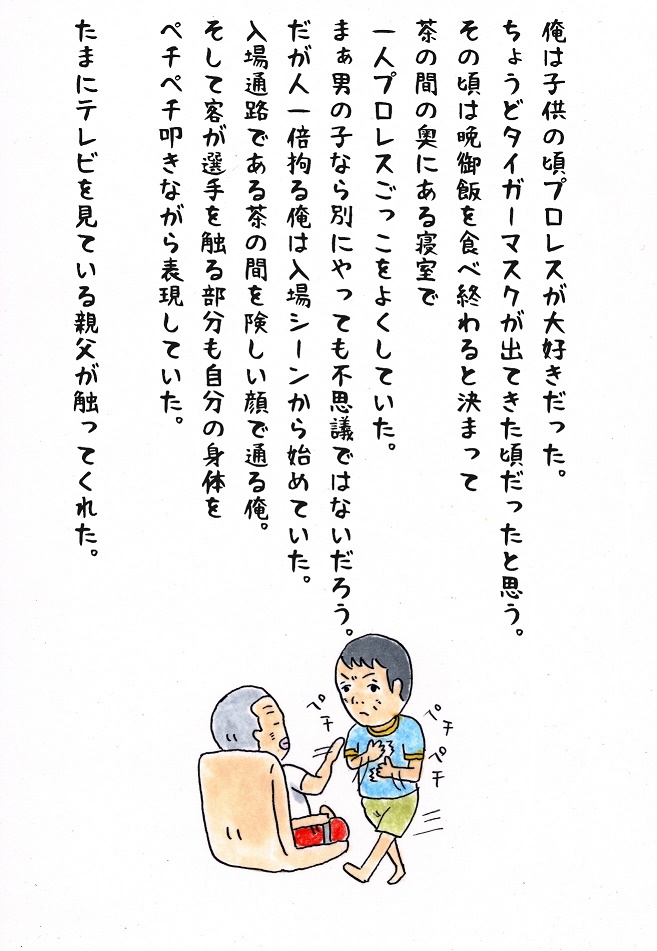 俺は子供の頃プロレスが大好きだった。
ちょうどタイガーマスクが出てきた頃だったと思う。
その頃は晩御飯を食べ終わると決まって
茶の間の奥にある寝室で
一人プロレスごっこをよくしていた。
まぁ男の子なら別にやっても不思議ではないだろう。
だが人一倍拘る俺は入場シーンから始めていた。
入場通路である茶の間を険しい顔で通る俺。
そして客が選手を触る部分も自分の身体を
ペチペチ叩きながら表現していた。
たまにテレビを見ている親父が触ってくれた。
ペチ
ペチ
ペチ